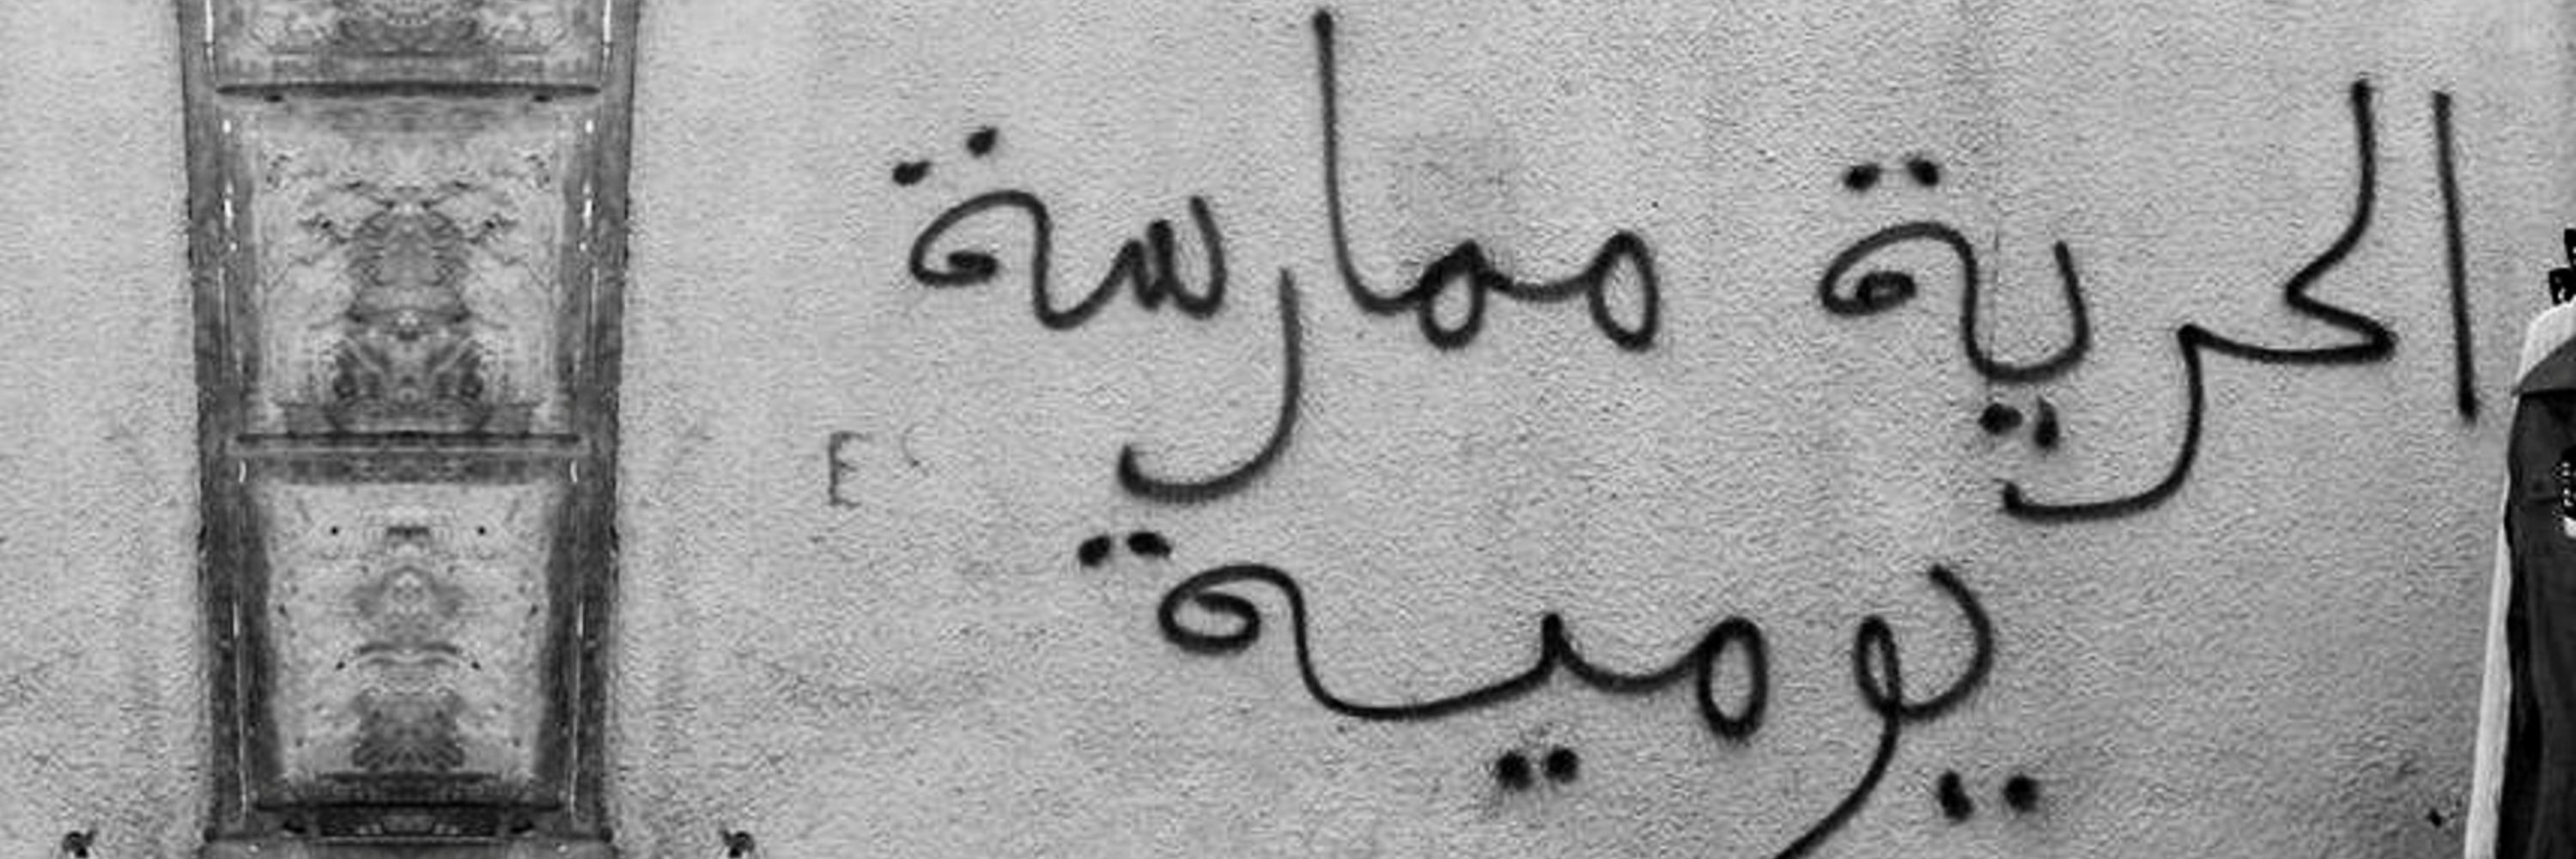 الحرية ممارسة
E
يومية